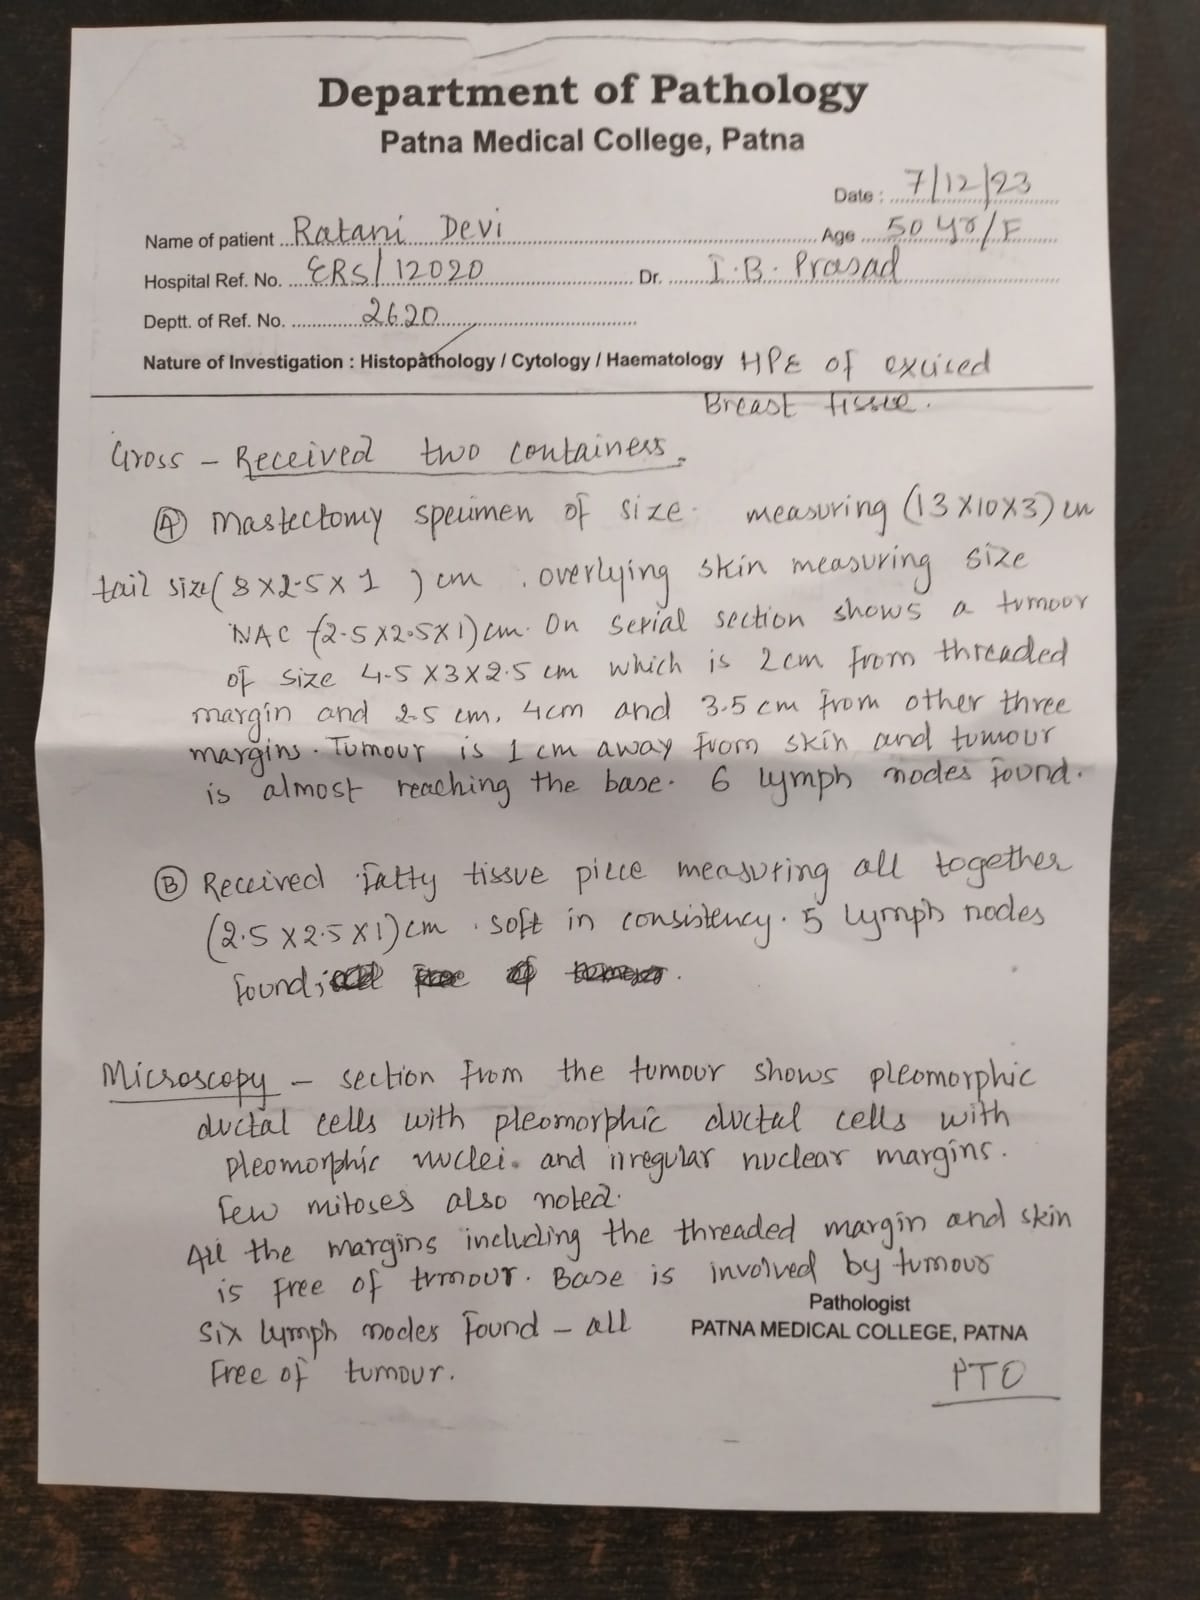 Department of Pathology
Patna Medical College, Patna
Date : 7/12/23
Name of patient Ratani Devi Age 50 yr/F
Hospital Ref. No. ERS/12020 Dr. I.B. Prasad
Deptt. of Ref. No. 2620
Nature of Investigation : Histopathology / Cytology / Haematology HPE of excised
Breast tissue.
Gross - Received two containers.
(A) Mastectomy specimen of size measuring (13x10x3) cm
tail size (8x2.5x1) cm . overlying skin measuring size
NAC (2.5x2.5x1) cm. On serial section shows a tumour
of size 4.5x3x2.5 cm which is 2cm from threaded
margin and 2.5 cm, 4cm and 3.5 cm from other three
margins. Tumour is 1 cm away from skin and tumour
is almost reaching the base. 6 lymph nodes found.
(B) Received fatty tissue piece measuring all together
(2.5x2.5x1) cm . soft in consistency. 5 lymph nodes
found;
Microscopy - section from the tumour shows pleomorphic
ductal cells with pleomorphic ductal cells with
pleomorphic nuclei. and irregular nuclear margins.
Few mitoses also noted.
All the margins including the threaded margin and skin
is free of tumour. Base is involved by tumour
Pathologist
Six lymph nodes found - all PATNA MEDICAL COLLEGE, PATNA
Free of tumour. PTO